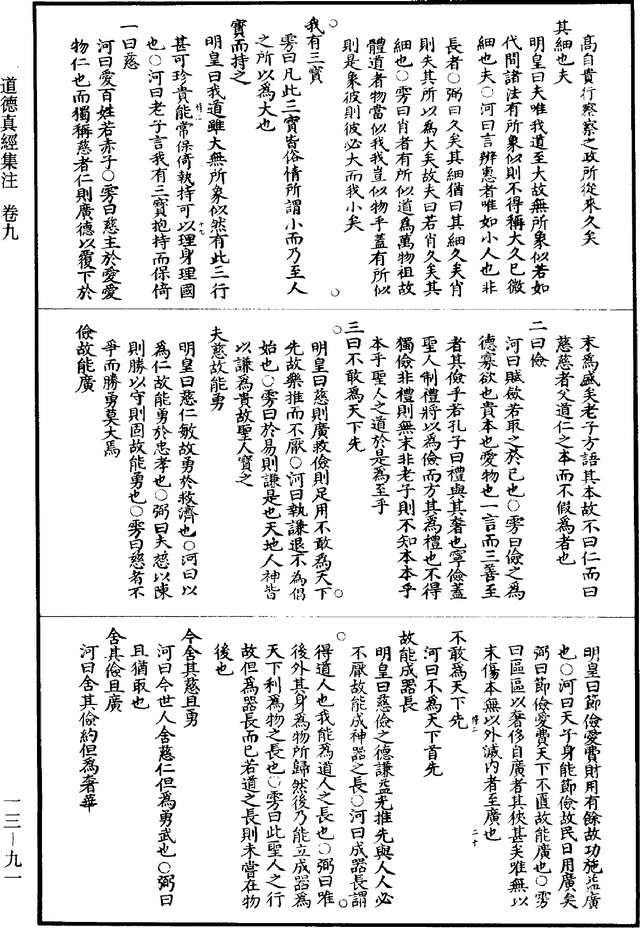 高自貴行察察之政所從來久矣
其細也夫
明皇曰夫唯我道至大故無所象似若如
代間諸法有所象似則不得稱大久已微
細也夫○河曰言辨惠者唯如小人也非
長者○弼曰久矣其細猶曰其細久矣肖
則失其所以為大矣故夫曰若肖久矣其
細也○雱曰肖者有所似道為萬物祖故
體道者物當似我我豈似物乎蓋有所似
則是象彼則彼必大而我小矣
我有三寶
雱曰凡此三寶皆俗情所謂小而乃至人
之所以為大也
寶而持之
明皇曰我道雖大無所象似然有此三行
甚可珍貴能常保倚執持可以理身理國
也○河曰老子言我有三寶抱持而保倚
一曰慈
河曰愛百姓若赤子○雱曰慈主於愛愛
物仁也而獨稱慈者仁則廣德以覆下於
末為盛矣老子方語其本故不曰仁而曰
慈慈者父道仁之本而不假為者也
二曰儉
河曰賦斂若取之於己也○雱曰儉之為
德寡欲也貴本也愛物也一言而三善至
者其儉乎若孔子曰禮與其奢也寧儉蓋
聖人制禮將以為儉而方其為禮也不得
獨儉非禮則無末非老子則不知本本乎
本乎聖人之道於是為至乎
三曰不敢為天下先
明皇曰慈則廣救儉則足用不敢為天下
先故樂推而不厭○河曰執謙退不為倡
始也○雱曰於易則謙是也天地人神皆
以謙為貴故聖人寶之
夫慈故能勇
明皇曰慈仁敏故勇於救濟也○河曰以
為仁故能勇於忠孝也○弼曰夫慈以陳
則勝以守則固故能勇也○雱曰慈者不
爭而勝勇莫大焉
儉故能廣
明皇曰節儉愛費財用有餘故功施益廣
也○河曰天子身能節儉故民日用廣矣
弼曰節儉愛費天下不匱故能廣也○雱
曰區區以奢侈自廣者其狹甚矣唯無以
末傷本無以外滅內者至廣也
不敢為天下先
河曰不為天下首先
故能成器長
明皇曰慈儉之德謙益光推先與人人必
不厭故能成神器之長○河曰成器長謂
得道人也我能為道人之長也○弼曰唯
後外其身為物所歸然後乃能立成器為
天下利為物之長也○雱曰此聖人之行
故但為器長而已若道之長則未嘗在物
後也
今舍其慈且勇
河曰今世人舍慈仁但為勇武也○弼曰
且猶取也
舍其儉且廣
河曰舍其儉約但為奢華
道德真經集注　卷九
一三—九一